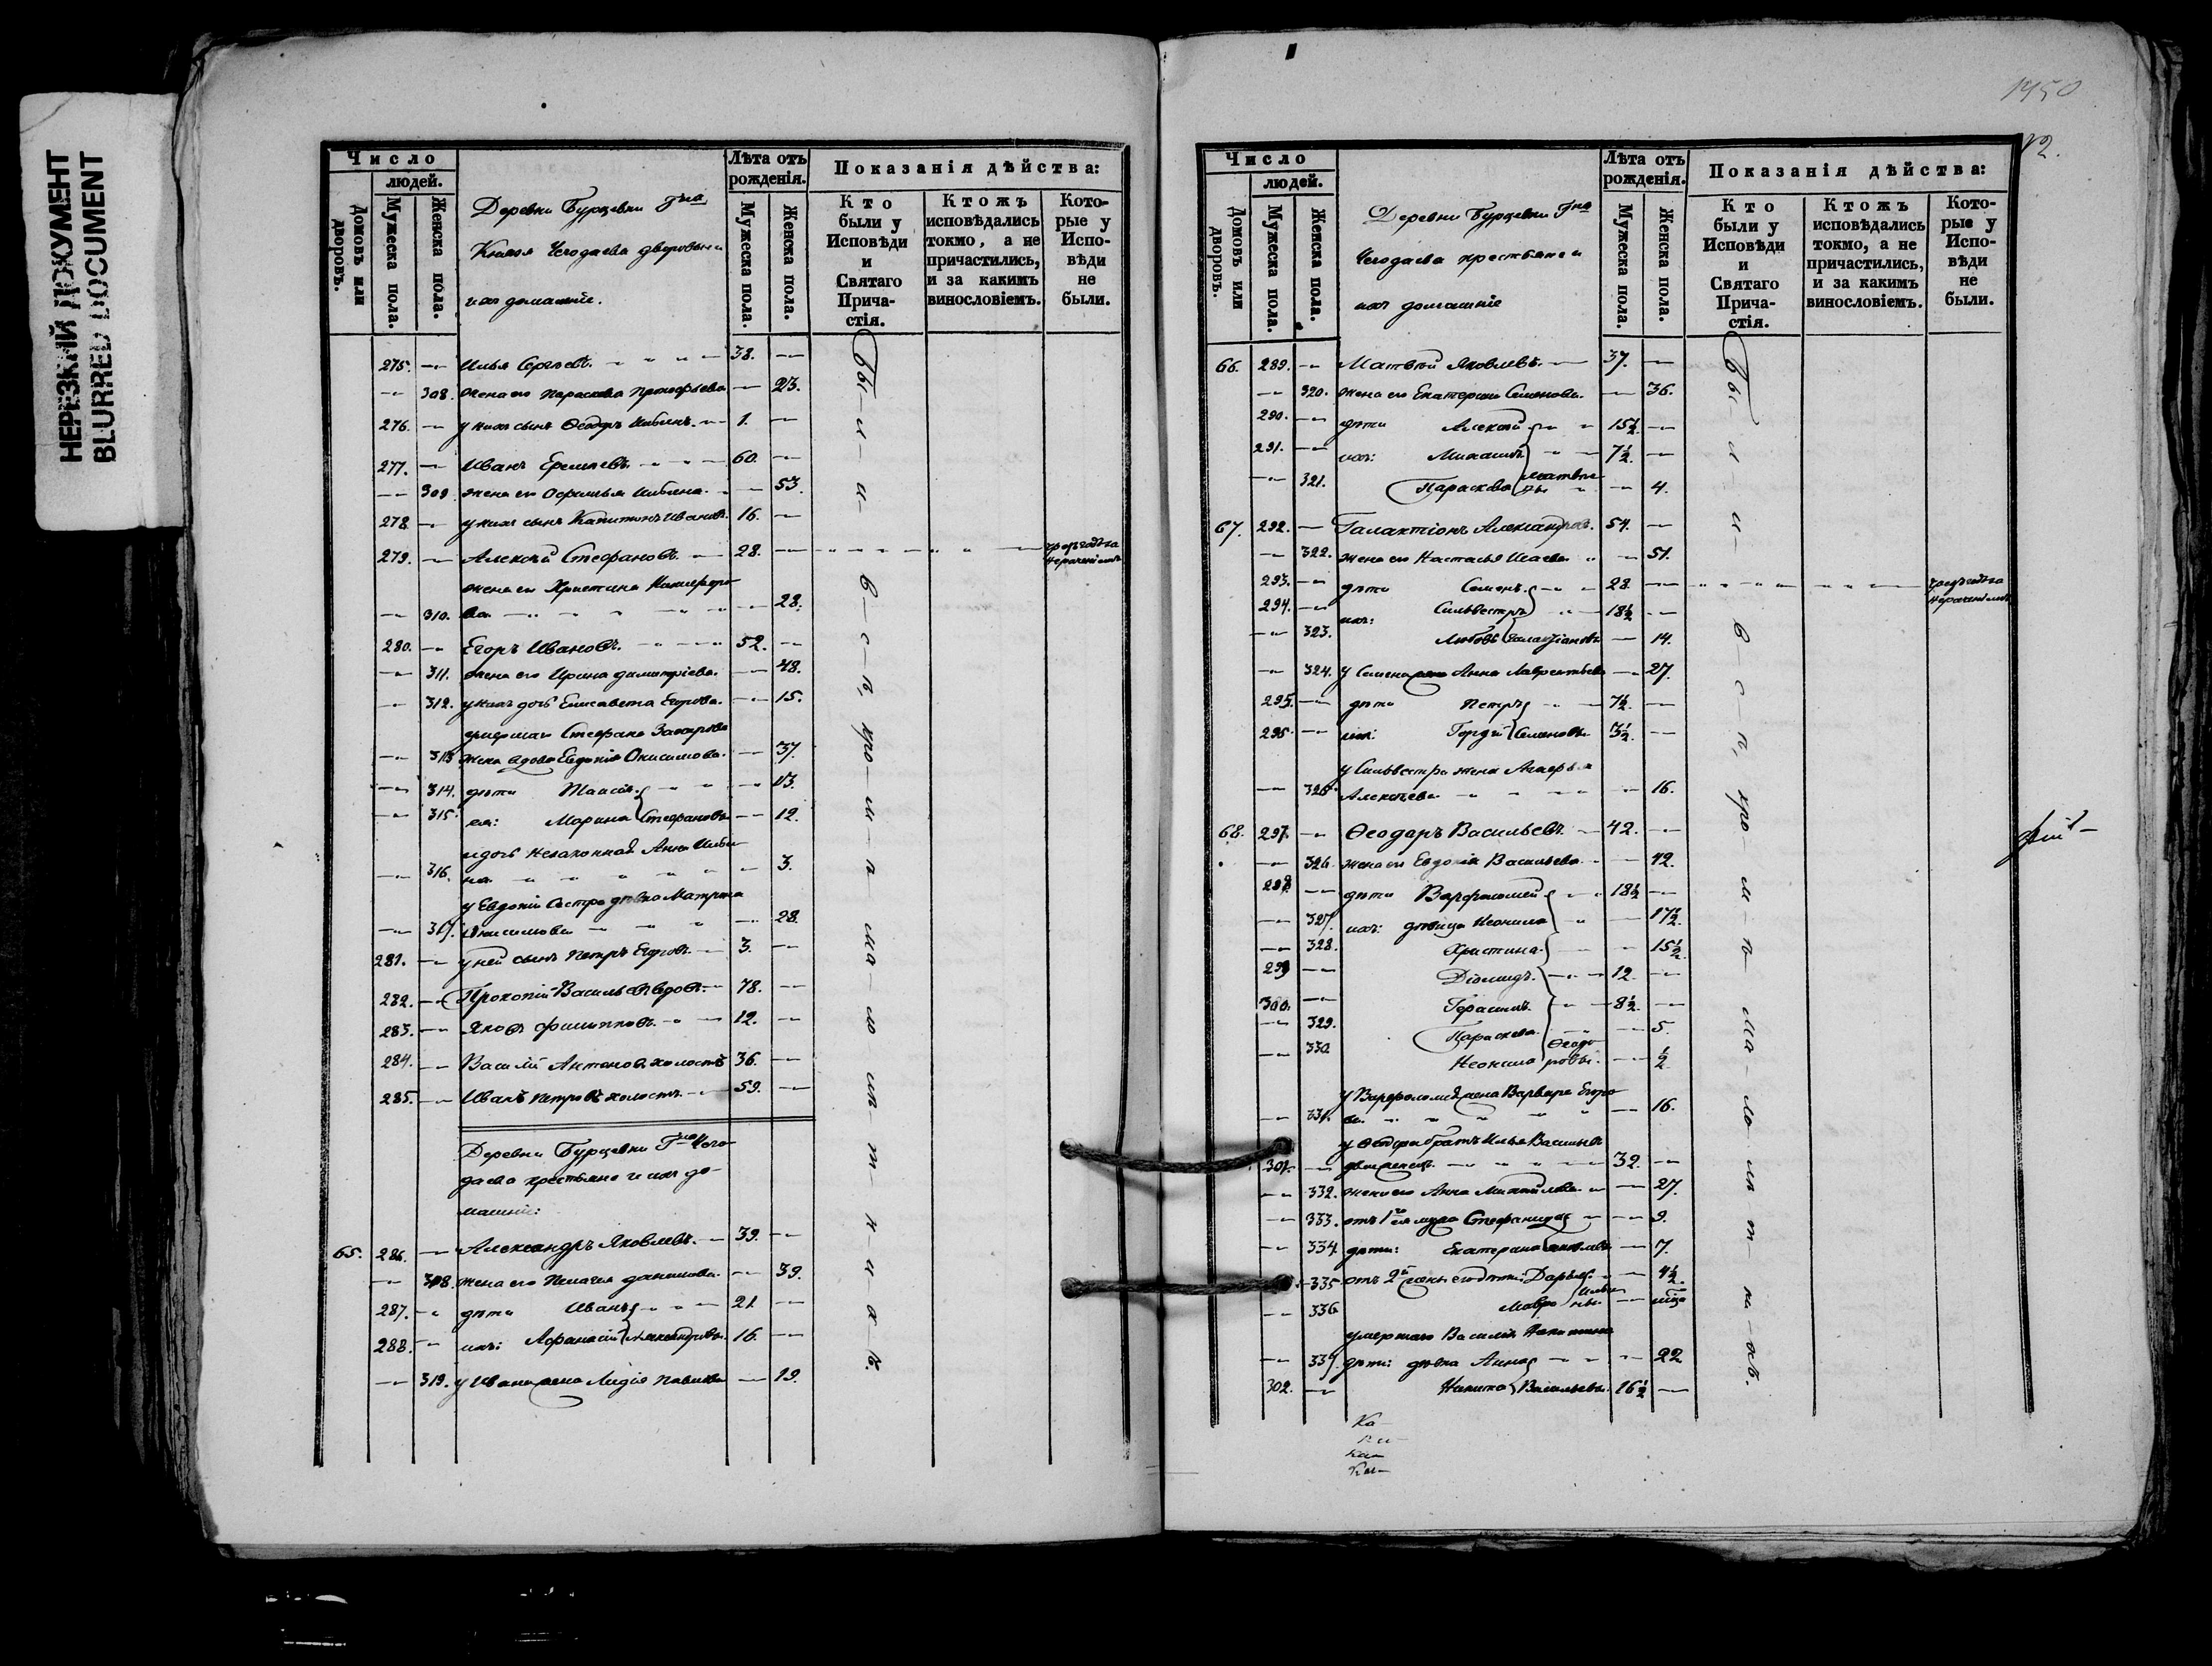 НЕРЕЗКИЙ ДОКУМЕНТ
BLURRED DOCUMENT
Число
людей.
Домовъ или дворовъ.
Мужеска пола.
Женска пола.
Деревни Бурцевки Гна
Князя Чегодаева дворовые и
ихъ домашніе.
Лѣта отъ рожденія.
Мужеска пола.
Женска пола.
Показанія дѣйства:
Кто были у Исповѣди и Святаго Прича-стія.
Ктожъ исповѣдались токмо, а не причастились, и за какимъ винословіемъ.
Кото-рые у Испо-вѣди не были.
275. — Илья Сергѣевъ. 38. —
— 308. жена его Параскева Прокофьева — 23.
276. — у нихъ сынъ Ѳеодоръ Ильинъ. 1. —
277. — Иванъ Еремѣевъ. 60. —
— 309. жена его Ильина. — 53.
278. — у нихъ сынъ Капитонъ Ивановъ. 16. —
279. — Алексѣй Стефановъ. 28. —
жена его Христина Никифоро-
— 310. ва — 28.
280. — Егоръ Ивановъ. 52. —
— 311. жена его Ирина Димитріева. — 48.
— 312. у нихъ дочь Елисавета Егорова. — 15.
умершаго Стефана Захарова
— 313 жена вдова Евдокія Онисимова. — 37.
— 314. дѣти Таисія — 13.
— 315. ея: Марина Стефановы — 12.
и дочь незаконная Анна Ильи-
— 316. на — 3.
у Евдокіи сестра дѣвка Матрона
— 317. Онисимова — 28.
281. — у ней сынъ Петръ Егоровъ. 3. —
282. — Прокопій Васильевъ вдовъ. 78. —
283. — Яковъ Филипповъ. 12. —
284. — Василій Антоновъ холостъ 36. —
285. — Иванъ Петровъ холостъ. 59. —
Деревни Бурцевки Гна Чего-
даева крестьяне и ихъ до-
машніе:
65. 286. — Александръ Яковлевъ. 39. —
— 318. жена его Пелагея Данилова. — 39.
287. — дѣти Иванъ 21. —
288. — ихъ: Афанасій Александровы. 16. —
— 319. у Ивана жена Лидія Павлова — 19.
Бы-и-и-в-с-п, кро-и-п-ма-ло-лѣт-н-и-х-ъ.
1450
12.
Число
людей.
Домовъ или дворовъ.
Мужеска пола.
Женска пола.
Деревни Бурцевки Гна
Чегодаева крестьяне и
ихъ домашніе
Лѣта отъ рожденія.
Мужеска пола.
Женска пола.
Показанія дѣйства:
Кто были у Исповѣди и Святаго Прича-стія.
Ктожъ исповѣдались токмо, а не причастились, и за какимъ винословіемъ.
Кото-рые у Испо-вѣди не были.
66. 289. — Матвѣй Яковлевъ. 37. —
— 320. жена его Екатерина Семенова. — 36.
290. — дѣти Алексѣй 15½ —
291. — ихъ: Михаилъ 7½. —
— 321. Параскева Матвѣе-вы — 4.
67. 292. — Галактіонъ Александровъ. 54. —
— 322. жена его Настасья Исаева — 51.
293. — дѣти Семенъ 28. —
294. — ихъ: Сильвестръ 18½ —
— 323. Любовь Галактіоновы — 14.
— 324. у Семена жена Анна Лаврентьева — 27.
295. — дѣти Петръ 7½. —
296. — ихъ: Гордѣй Семеновы. 3½. —
у Сильвестра жена
— 325. Алексѣева — 16.
68. 297. — Ѳеодоръ Васильевъ. 42. —
— 326. жена его Евдокія Васильева. — 42.
298. — дѣти Варфоломей 18½ —
— 327. ихъ: дѣвица Неонила — 17½.
— 328. Христина — 15½
299 — Діомидъ. 12. —
300. — Герасимъ. 8½. —
— 329. Параскева. — 5.
— 330. Неонила Ѳеодо-ровы. — ½
у Варфоломея жена Варвара Егоро-
— 331. ва. — 16.
у Ѳеодора братъ Илья Васильевъ
301. — 32. —
— 332. жена его Анна Михайлова — 27.
— 333. отъ 1го ея мужа Стефанида — 9.
— 334. дѣти: Екатерина Яковлевы — 7.
— 335 отъ 2й жены его дѣти: Дарья — 4½.
— 336 Мавра Ильи-ны —
умершаго Василія Никитина
— 337. дѣти: дѣвка Анна — 22
302. — Никита Васильевы. 16½ —
Бы-и-и-в-с-п, кро-м-п-ма-ло-лѣт-н-ихъ.